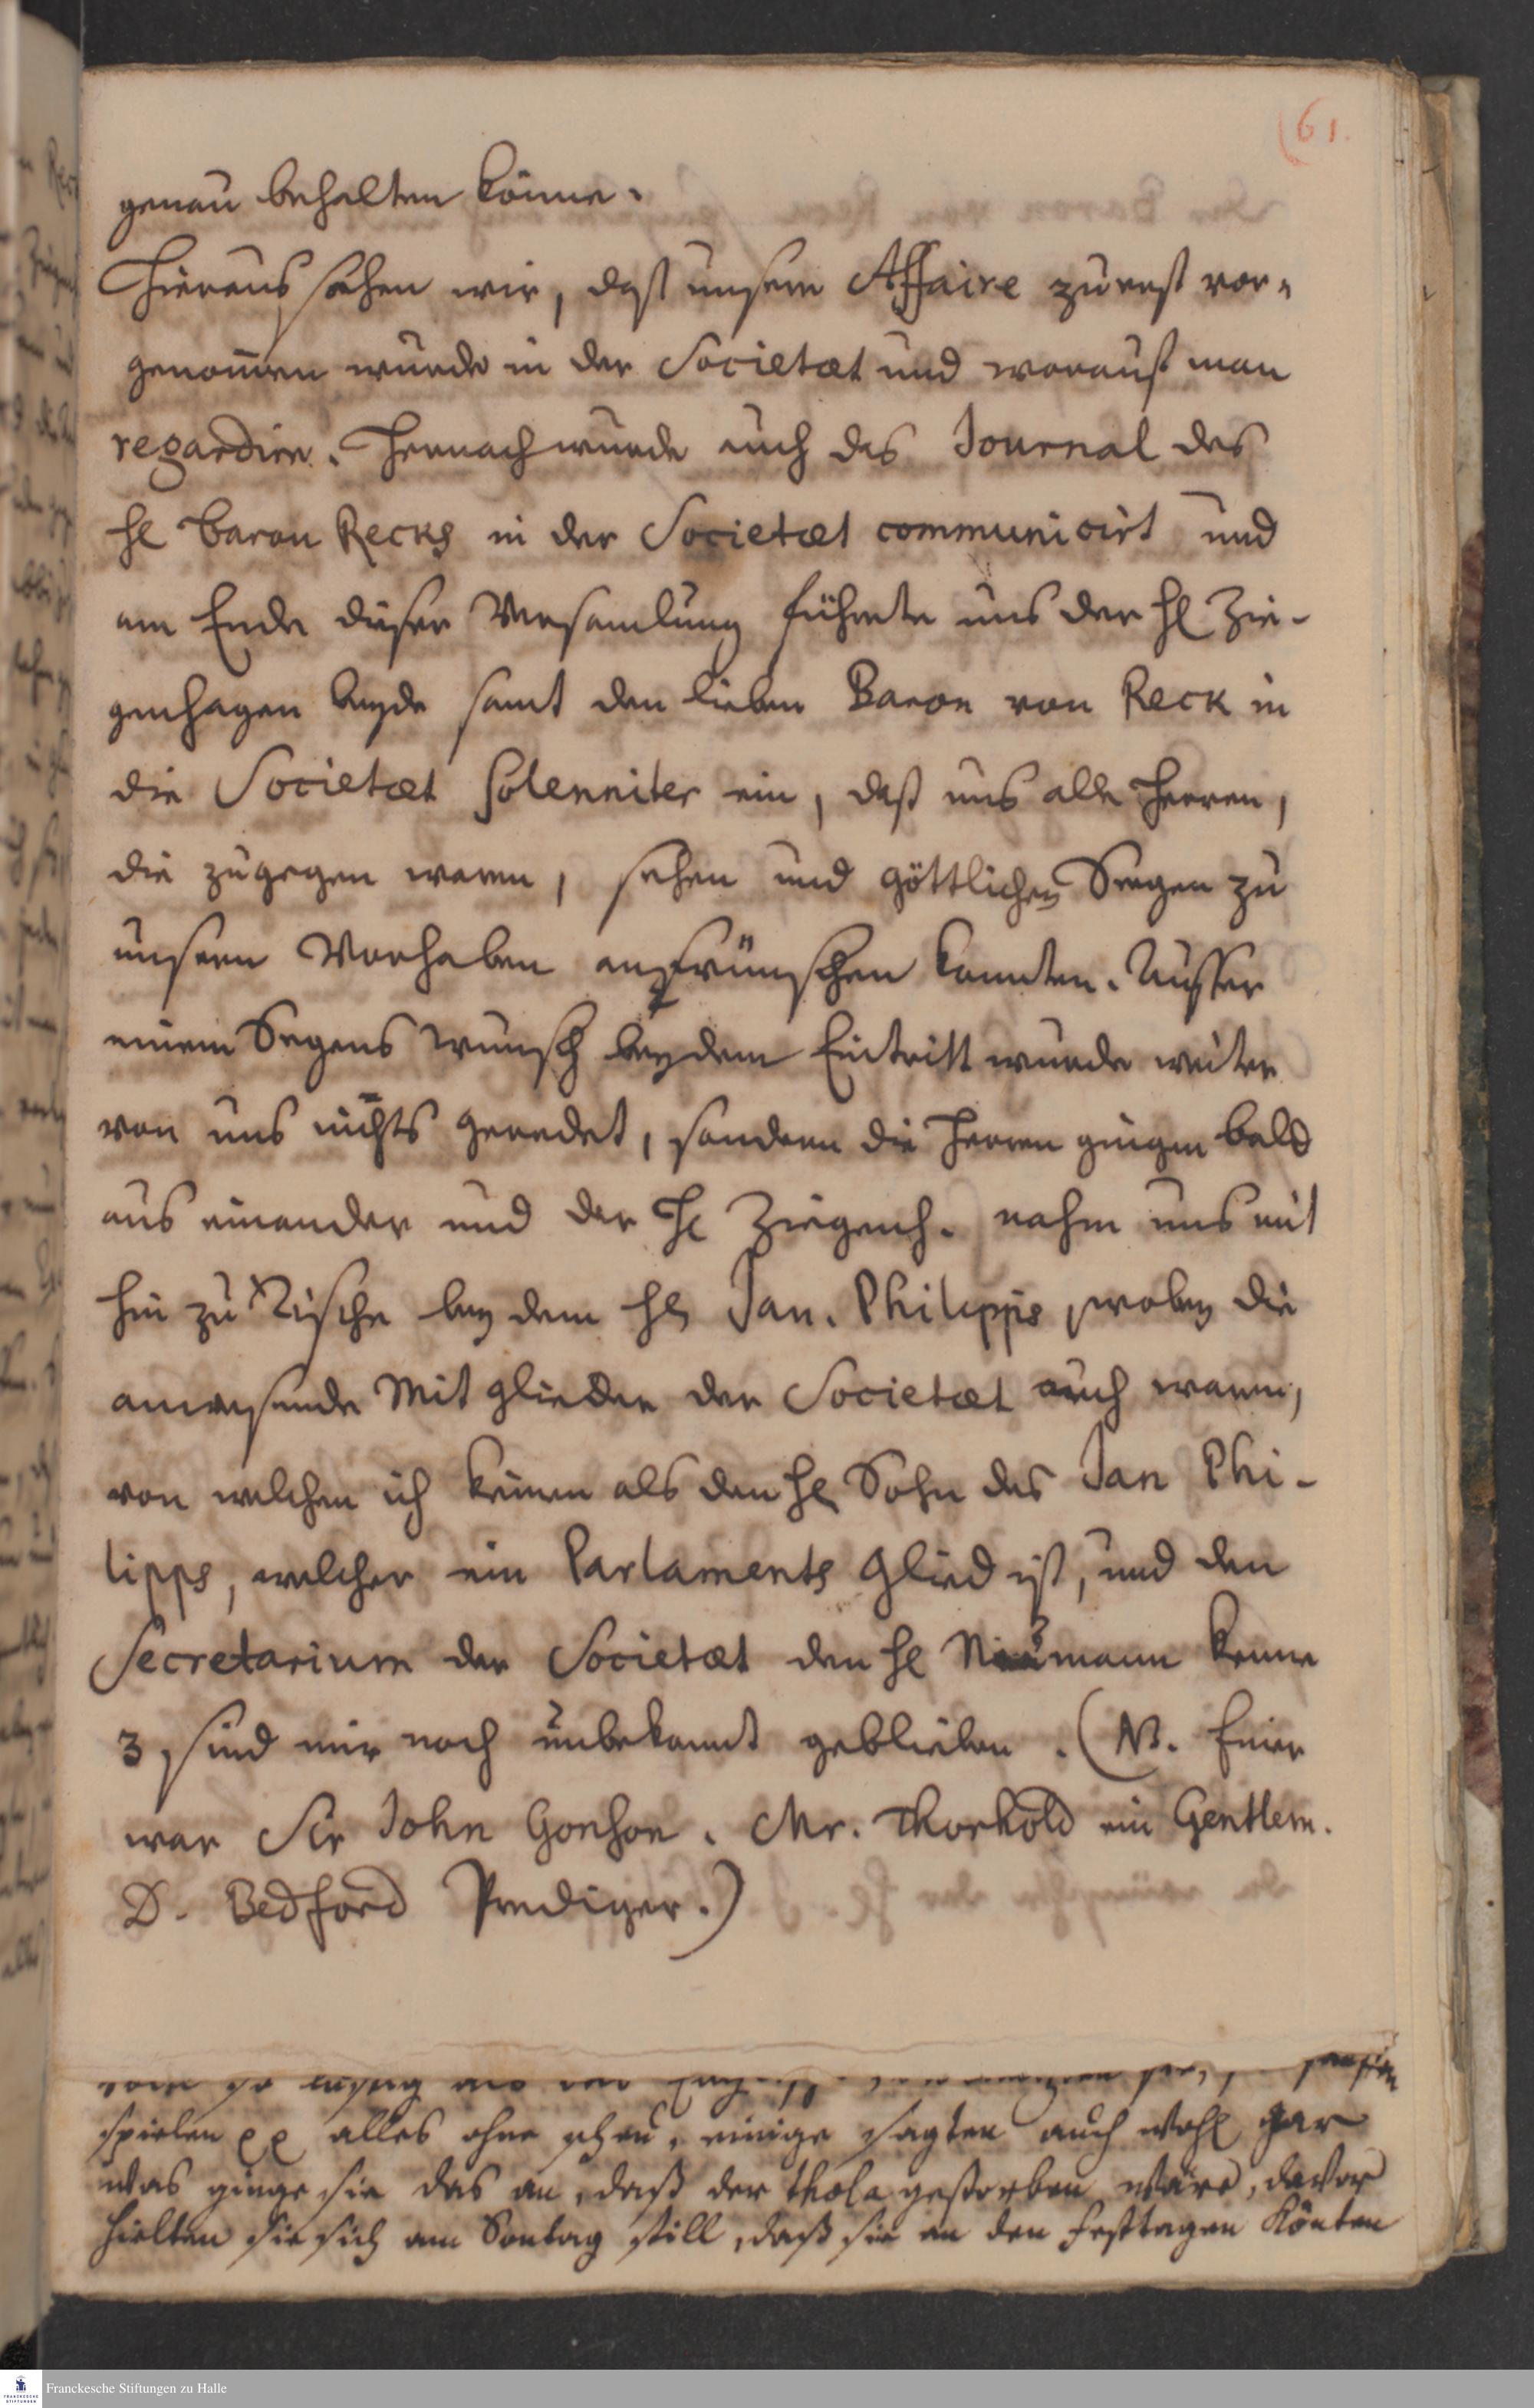 61.
genau behalten könne.
Hieraus sahen wir, daß unsere Affaire zuerst vor-
genom̄en wurde in der Societæt und worauf man
regardire. Hernach wurde auch das Journal des
Hl Baron Recks in der Societæt communicirt und
am Ende dieser Versamlung führete uns der Hl Zie-
genhagen beyde samt den lieben Baron von Reck in
die Societæt solenniter ein, daß uns alle Herren,
die zugegen waren, sehen und göttlichen Seegen zu
unserm Vorhaben anwünschen konnten. Ausser
einem Segens wunsch bey dem Eintritt wurde weiter
von uns nichts geredet, sondern die Herren gingen bald
aus einander und der H Ziegenh. nahm uns mit
hin zu Tische bey dem Hl Jan. Philipps, wobey die
anwesende Mit glieder der Societæt auch waren,
von welchen ich keinen als den Hl Sohn des Jan Phi-
lipps, welcher ein Parlaments Glied ist, und den
Secretarium der Societæt den Hl Neumann kenne
3 sind mir noch unbekannt geblieben. (NB. Einer
war Sir John Gonson. Mr. Thorhold ein Gentlem.
D. Bedford Prediger.)
spielen alles ohne scheu, einige sagten auch wohl gar
was ginge sie das an, daß der gestorben wäre, davor
hielten sie sich am Sontag still, daß sie an den Festtagen könten
Franckesche Stiftungen zu Halle